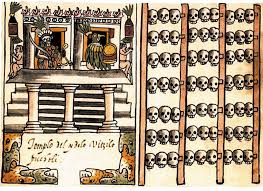 Templo del ydolo Vitzilo
puchtli